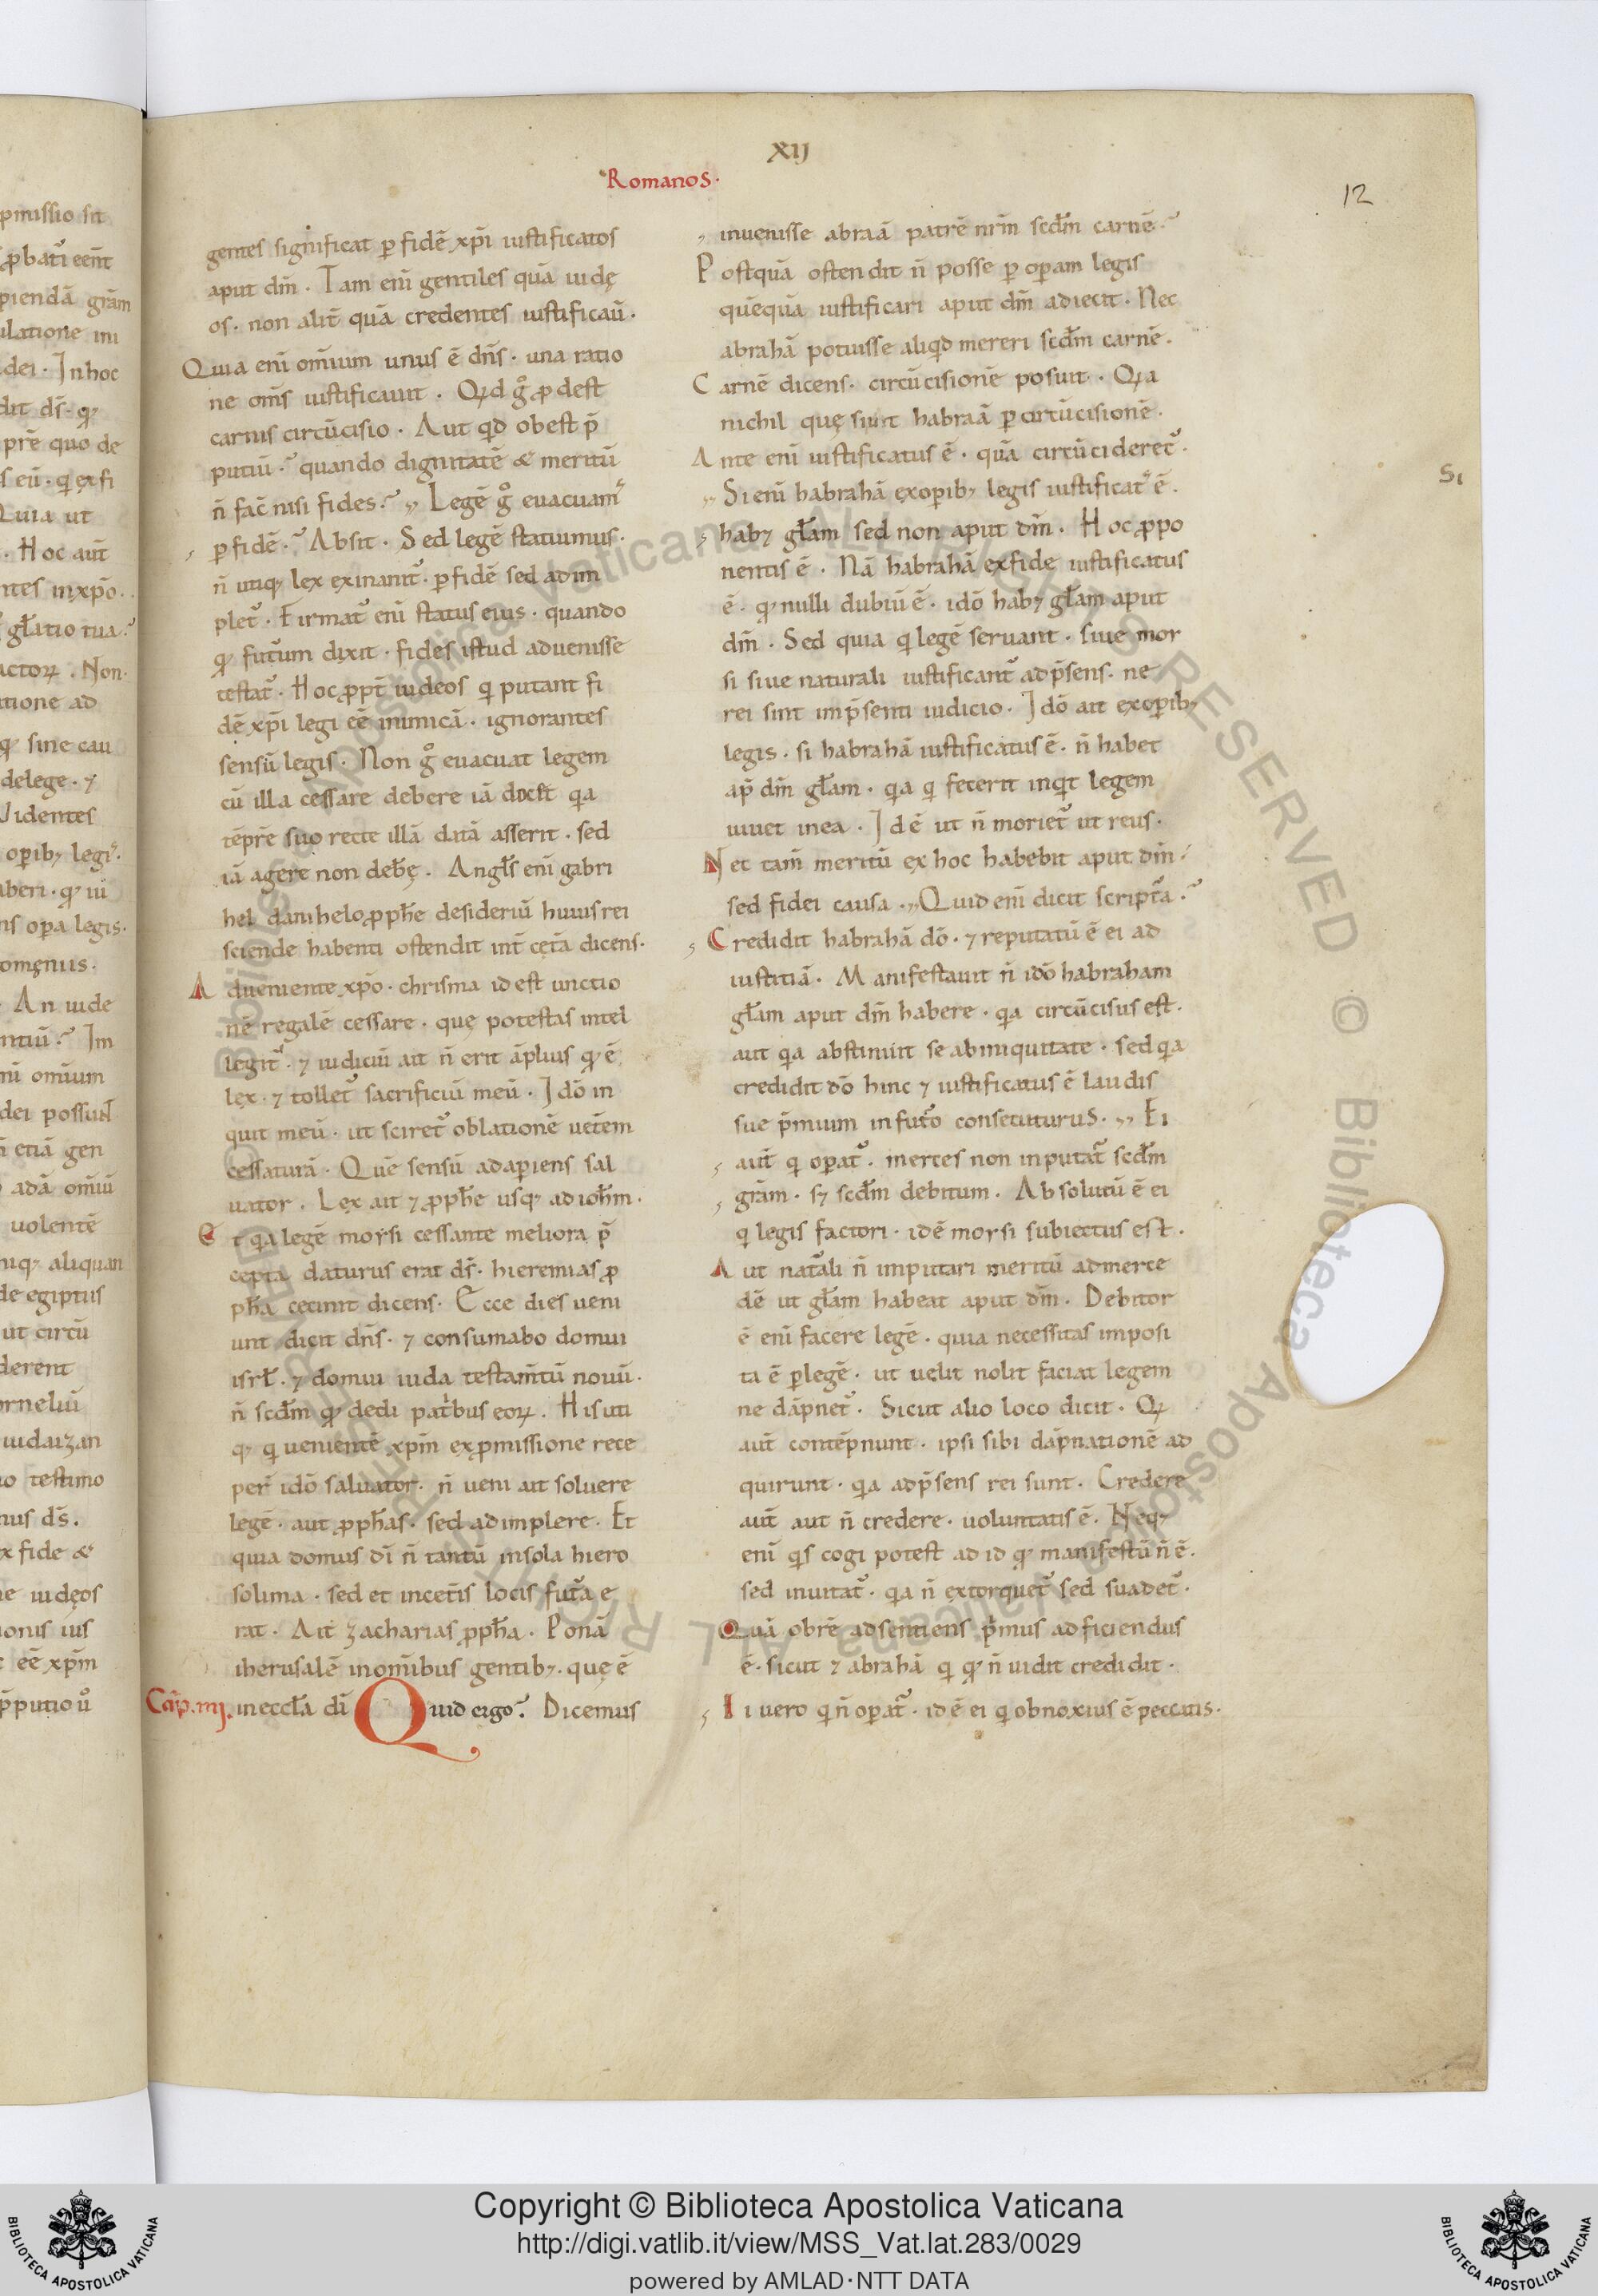 XIJ
Romanos.
12
gentes significat p fidē xp̄i iustificatos
aput dm̄. Tam enī gentiles quā iudę
os. non alit̄ quā credentes iustificau̅.
Quia enī om̅ium unus ē dn̄s. una ratio
ne om̄s iustificauit. Qd gͦ pdest
carnis circūcisio. Aut qd obest p̄
putiū? quando dignitatē & meritū
n̄ fac̄ nisi fides? Legē gͦ euacuam᷒
p fidē? Absit. Sed legē statuimus.
n̄ utiqꝫ lex exinanit᷒. p fidē sed adim
plet᷒. Firmat᷒ enī status eius. quando
qꝫ futūm dixit. fides istud aduenisse
testat᷒. Hoc ppt̄ iudeos q putant fi
dē xp̄i legi eē inimicā. ignorantes
sensū legis. Non gͦ euacuat legem
cū illa cessare debere iā docet qa
tēpre suo recte illā datā asserit. sed
iā agere non debę. Angls enī gabri
hel danihelo pphe desideriū huius rei
sciende habenti ostendit int̄ cet̄a dicens.
Adueniente xp̄o. chrisma id est unctio
nē regalē cessare. quę potestas intel
legit᷒. ⁊ iudiciū ait n̄ erit āplius qꝫ ē
lex. ⁊ tollet᷒ sacrificiū meū. Idō in
quit meū. ut sciret᷒ oblationē uet̄em
cessaturā. Quē sensū adapiens sal
uator. Lex ait ⁊ pphe usqꝫ ad iohm.
Et qa legē moysi cessante meliora p̄
cepta daturus erat ds̄. hieremias p
pha cecinit dicens. Ecce dies ueni
unt dicit dn̄s. ⁊ consumabo domui
isrl. ⁊ domui iuda testam̄tū nouū.
n̄ scdm qꝫ dedi patbus eoꝝ. His uti
qꝫ q uenientē xp̄m ex pmissione rece
per̄ idō saluator. n̄ ueni ait soluere
legē. aut pphas. sed adimplere. Et
quia domus dī n̄ tantū insola hiero
solima. sed et incet̄is locis fut̄a e
rat. Ait zacharias ppha. Ponā
iherusalē inom̄ibus gentibꝫ. quę ē
Cap. iiij. ineccla dī Quid ergo? Dicemus
inuenisse abraā patrē nrm̄ scdm carnē?
Postquā ostendit n̄ posse p opam legis
quēquā iustificari aput dm̄ adiecit. Nec
abrahā potuisse aliqd mereri scdm carnē.
Carnē dicens. circūcisionē posuit. Qa
nichil quęsiuit habraā p circūcisionē.
Ante enī iustificatus ē. quā circūcideret᷒.
Si enī habrahā exopibꝫ legis iustificat᷒ ē.
habꝫ glam sed non aput dm̄. Hoc ppo
nentis ē. Nā habrahā exfide iustificatus
ē. qꝫ nulli dubiū ē. idō habꝫ glam aput
dm̄. Sed quia q legē seruant. siue moy
si siue naturali iustificant᷒ adp̄sens. ne
rei sint imp̄senti iudicio. Idō ait exopibꝫ
legis. si habrahā iustificatus ē. n̄ habet
ap̄ dm̄ glam. qa q fecerit inqt legem
uiuet inea. Id ē ut n̄ moriet᷒ ut reus.
Nec tam̄ meritū ex hoc habebit aput dm̄.
sed fidei causa. Quid enī dicit script̄a?
Credidit habrahā dō. ⁊ reputatū ē ei ad
iustitiā. Manifestauit n̄ idō habraham
glam aput dm̄ habere. qa circūcisus est.
aut qa abstinuit se abiniquitate. sed qa
credidit dō hinc ⁊ iustificatus ē laudis
sue p̄mium infut̄o consecuturus. Ei
aut̄ q opat᷒. merces non inputat᷒ scdm
grām. sꝫ scdm debitum. Absolutū ē ei
q legis factori. idē moysi subiectus est.
Aut nat̄ali n̄ imputari meritū admerce
dē ut glam habeat aput dm̄. Debitor
ē enī facere legē. quia necessitas imposi
ta ē plegē. ut uelit nolit faciat legem
ne dāpnet᷒. Sicut alio loco dicit. Qꝫ
aut̄ contēpnunt. ipsi sibi dāpnationē ad
quirunt. qa adp̄sens rei sunt. Credere
aut̄ aut n̄ credere. uoluntatis ē. Neqꝫ
enī qs cogi potest ad id qꝫ manifestū n̄ ē.
sed inuitat᷒. qa n̄ extorquet᷒ sed suadet᷒.
Quā obrē adsentiens p̄mus adficiendus
ē. sicut ⁊ abrahā q qꝫ n̄ uidit credidit.
Ii uero q n̄ opat᷒. id ē ei q obnoxius ē peccatis.
Si
Copyright © Biblioteca Apostolica Vaticana
http://digi.vatlib.it/view/MSS_Vat.lat.283/0029
powered by AMLAD·NTT DATA
BIBLIOTECA APOSTOLICA VATICANA
BIBLIOTECA APOSTOLICA VATICANA